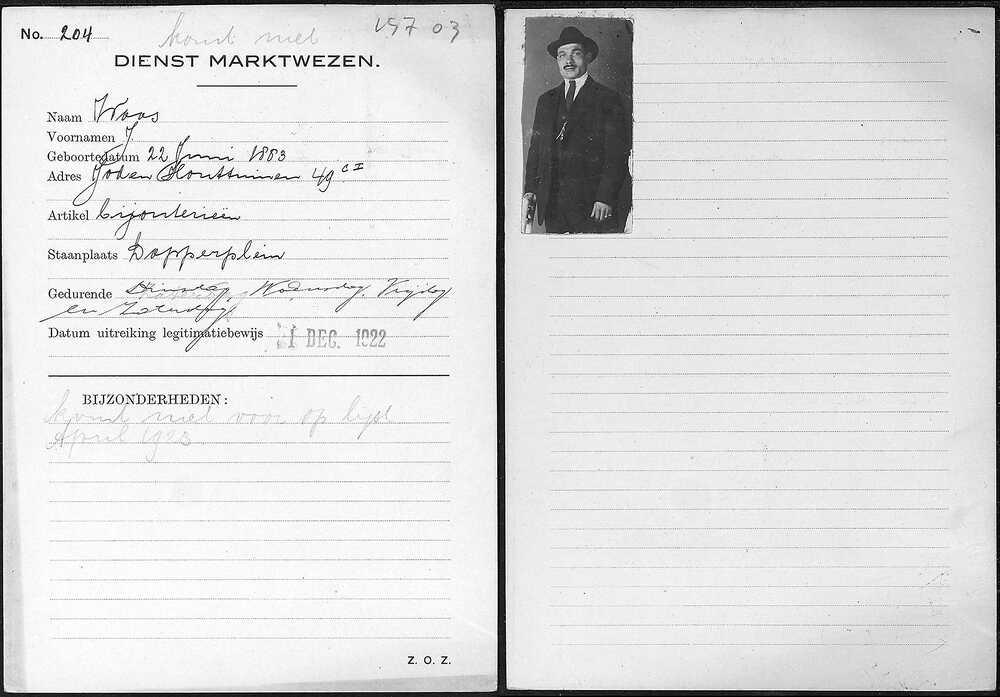 No. 204
komt niet
197 03
DIENST MARKTWEZEN.
Naam Voos
Voornamen J.
Geboortedatum 22 Juni 1883
Adres Joden Houttuinen 49 c I
Artikel bijouterieën
Staanplaats Dapperplein
Gedurende Dinsdag, Woensdag, Vrijdag
en Zaterdag
Datum uitreiking legitimatiebewijs 1 DEC. 1922
BIJZONDERHEDEN:
komt niet voor op lijst
April 1923
Z. O. Z.